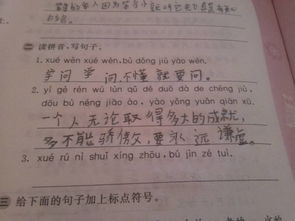 二 读拼音，写句子。
1. xué wèn xué wèn, bù dǒng jiù yào wèn.
学问学问,不懂就要问。
2. yí gè rén wú lùn qǔ dé duō dà de chéng jiù,
dōu bù néng jiāo ào, yào yǒng yuǎn qiān xū.
一个人无论取得多大的成就,
多不能骄傲,要永远谦虚。
3. xué rú nì shuǐ xíng zhōu, bú jìn zé tuì.
三 给下面的句子加上标点符号。